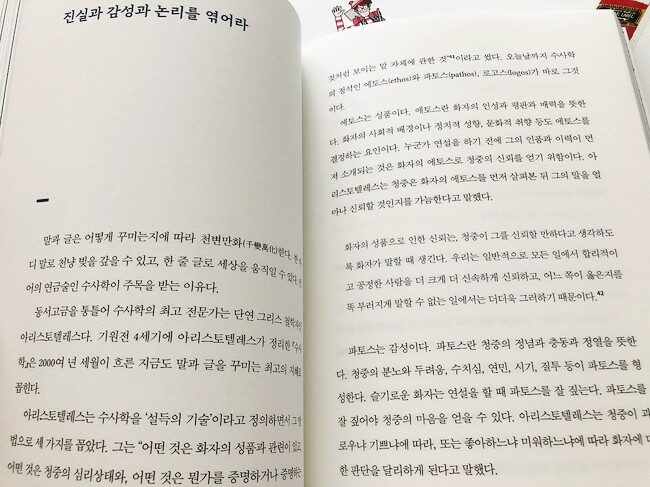 진실과 감성과 논리를 엮어라
말과 글은 어떻게 꾸미는지에 따라 천변만화(千變萬化)한다. 한 마
디 말로 천냥 빚을 갚을 수 있고, 한 줄 글로 세상을 움직일 수 있다.
어의 연금술인 수사학이 주목을 받는 이유다.
동서고금을 통틀어 수사학의 최고 전문가는 단연 그리스 철학자인
아리스토텔레스다. 기원전 4세기에 아리스토텔레스가 정리한 『수사
학』은 2000여 년 세월이 흐른 지금도 말과 글을 꾸미는 최고의 지혜로
꼽힌다.
아리스토텔레스는 수사학을 '설득의 기술'이라고 정의하면서 그 방
법으로 세 가지를 꼽았다. 그는 "어떤 것은 화자의 성품과 관련이 있고,
어떤 것은 청중의 심리상태와, 어떤 것은 뭔가를 증명하거나 증명하는
것처럼 보이는 말 자체에 관한 것"⁴¹이라고 썼다. 오늘날까지 수사학
의 정석인 에토스(ethos)와 파토스(pathos), 로고스(logos)가 바로 그것
이다.
에토스는 성품이다. 에토스란 화자의 인성과 평판과 매력을 뜻한
다. 화자의 사회적 배경이나 정치적 성향, 문화적 취향 등도 에토스를
결정하는 요인이다. 누군가 연설을 하기 전에 그의 인품과 이력이 먼
저 소개되는 것은 화자의 에토스로 청중의 신뢰를 얻기 위함이다. 아
리스토텔레스는 청중은 화자의 에토스를 먼저 살펴본 뒤 그의 말을 얼
마나 신뢰할 것인지를 가늠한다고 말했다.
화자의 성품으로 인한 신뢰는, 청중이 그를 신뢰할 만하다고 생각하도
록 화자가 말할 때 생긴다. 우리는 일반적으로 모든 일에서 합리적이
고 공정한 사람을 더 크게 더 신속하게 신뢰하고, 어느 쪽이 옳은지를
똑 부러지게 말할 수 없는 일에서는 더더욱 그러하기 때문이다.⁴²
파토스는 감성이다. 파토스란 청중의 정념과 충동과 정열을 뜻한
다. 청중의 분노와 두려움, 수치심, 연민, 시기, 질투 등이 파토스를 형
성한다. 슬기로운 화자는 연설을 할 때 파토스를 잘 짚는다. 파토스를
잘 짚어야 청중의 마음을 얻을 수 있다. 아리스토텔레스는 청중이 괴
로우냐 기쁘냐에 따라, 또는 좋아하느냐 미워하느냐에 따라 화자에 대
한 판단을 달리하게 된다고 말했다.